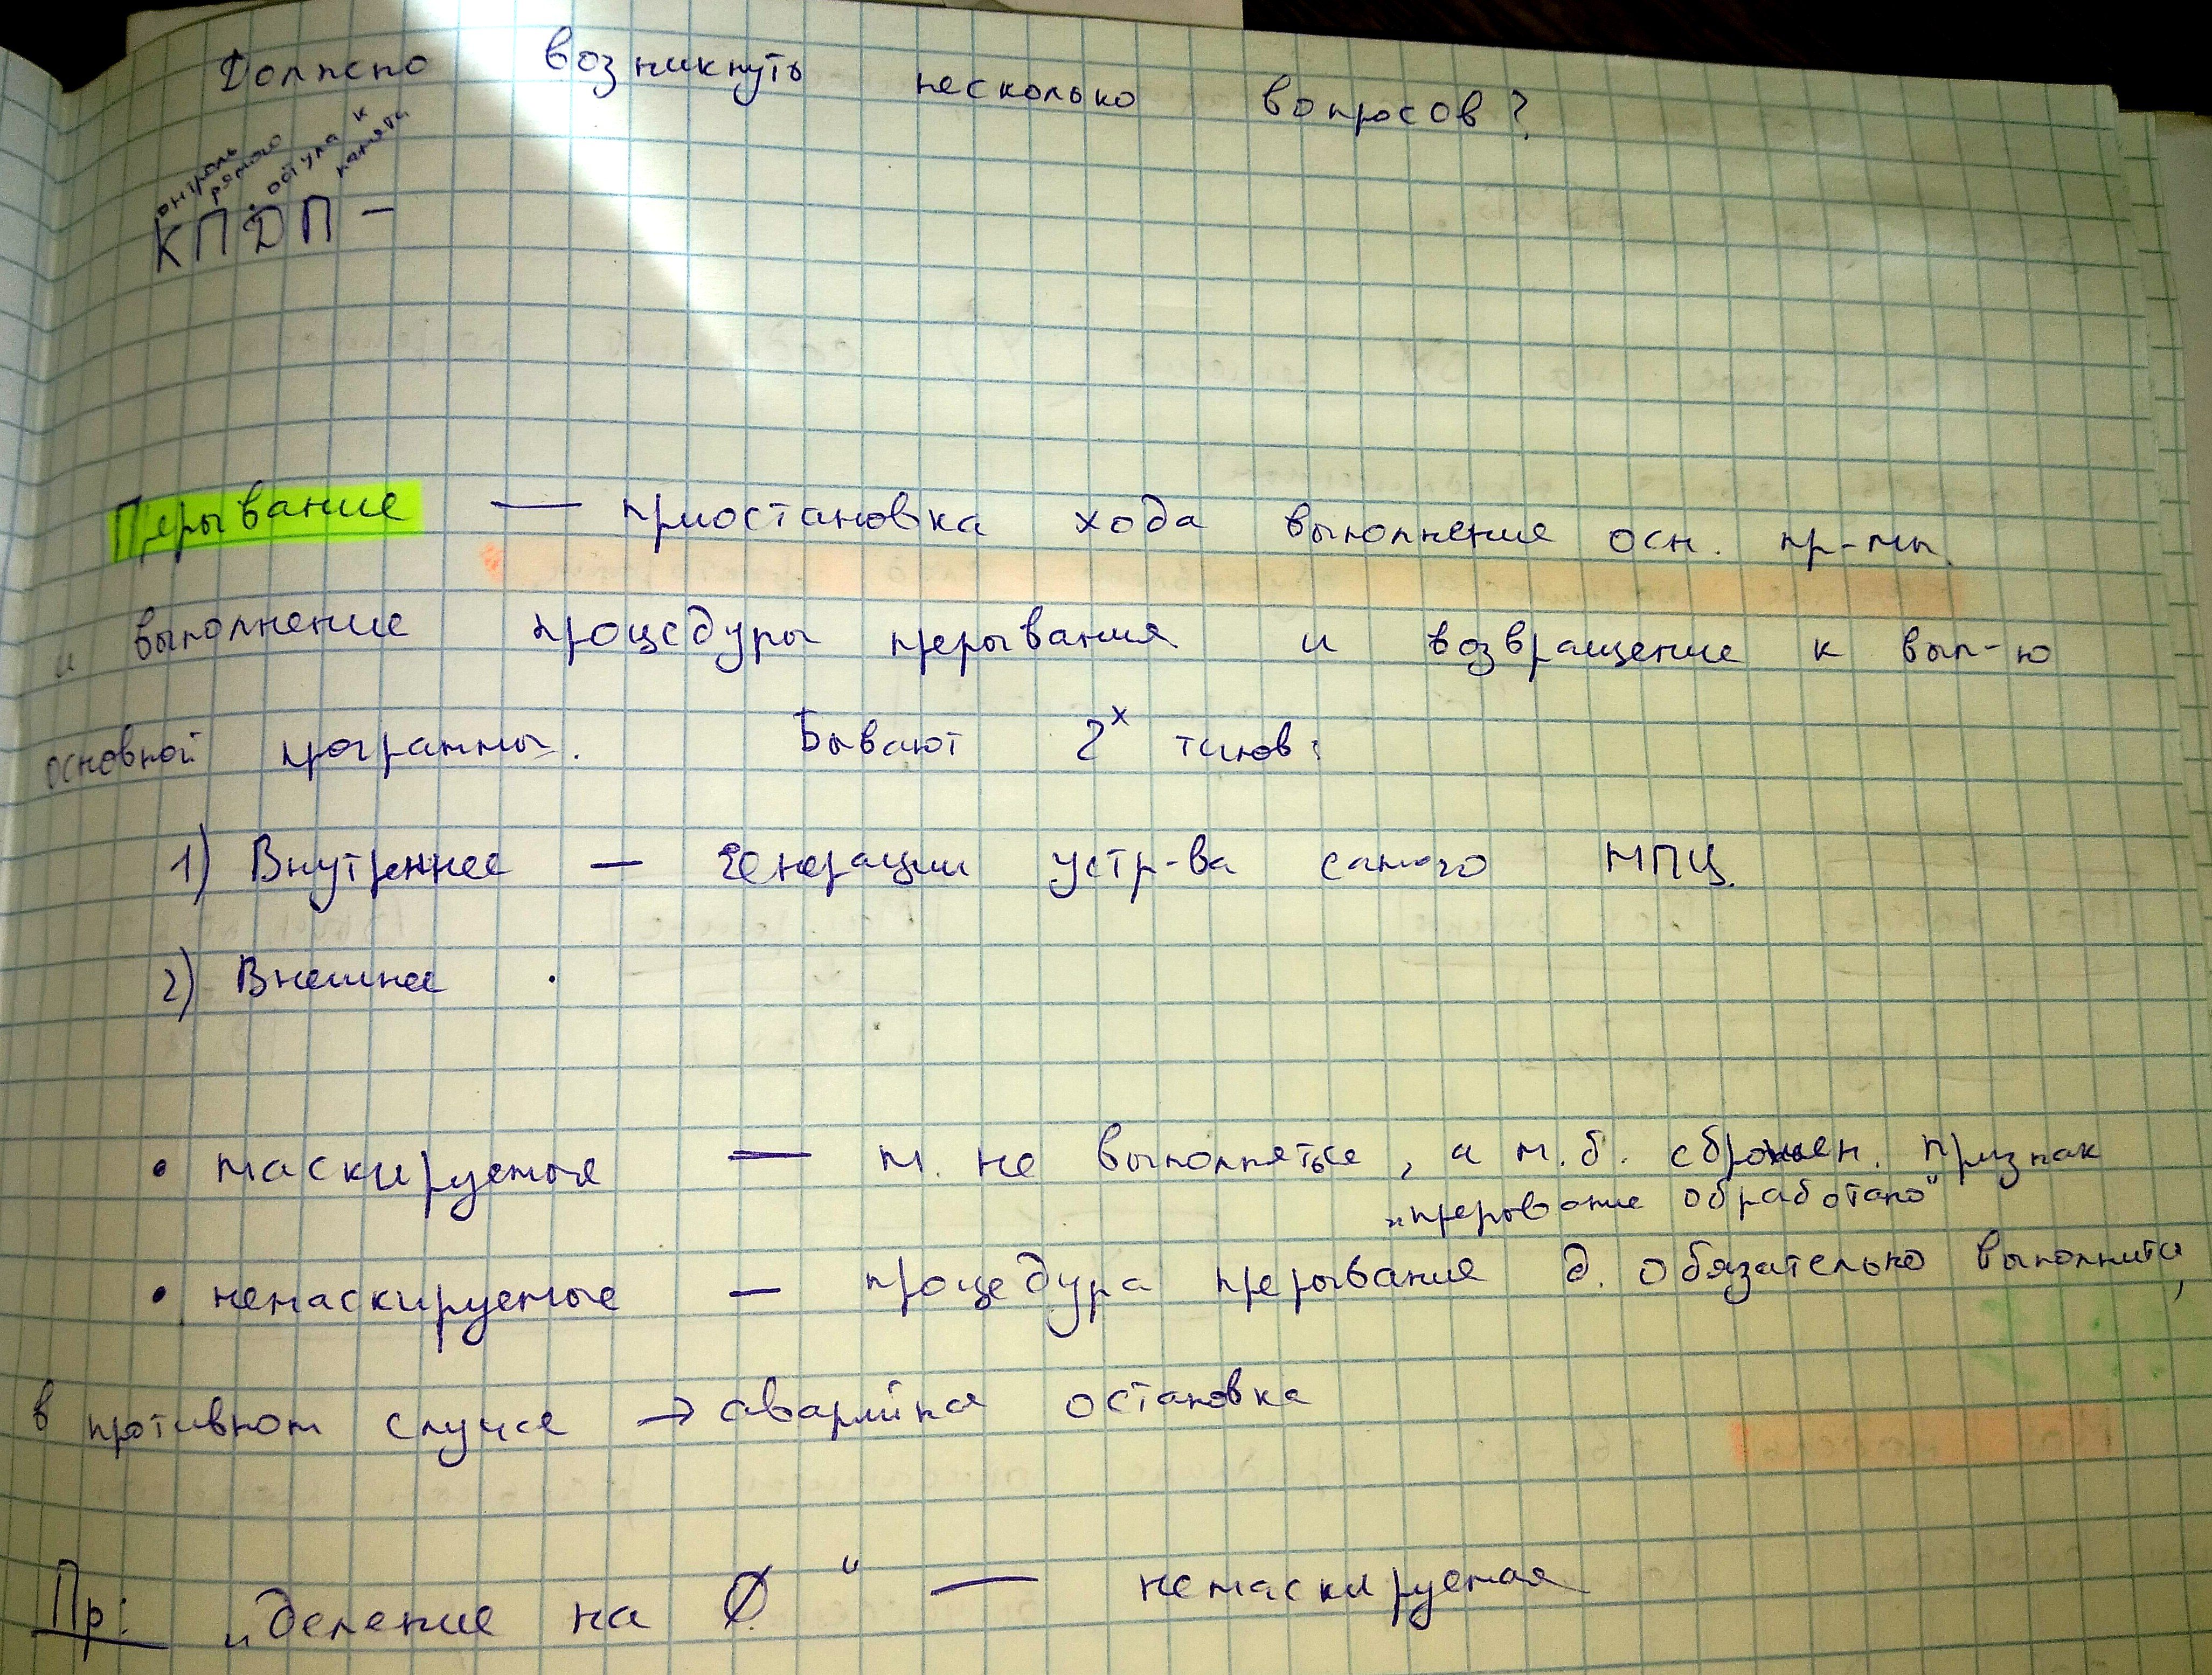 Должно возникнуть несколько вопросов?
онтроль рямого оступа к памяти
КПДП —
Прерывание — приостановка хода выполнения осн. пр-мы
и выполнение процедуры прерывания и возвращение к вып-ю
основной программы. Бывают 2х типов:
1) Внутреннее — генерации устр-ва самого МПЦ.
2) Внешнее .
• маскируемые — м. не выполняться, а м.б. сброшен. признак
„прерывание обработано"
• немаскируемые — процедура прерывания д. обязательно выполнится,
в противном случае → аварийная остановка
Пр: „деление на 0" — немаскируемая